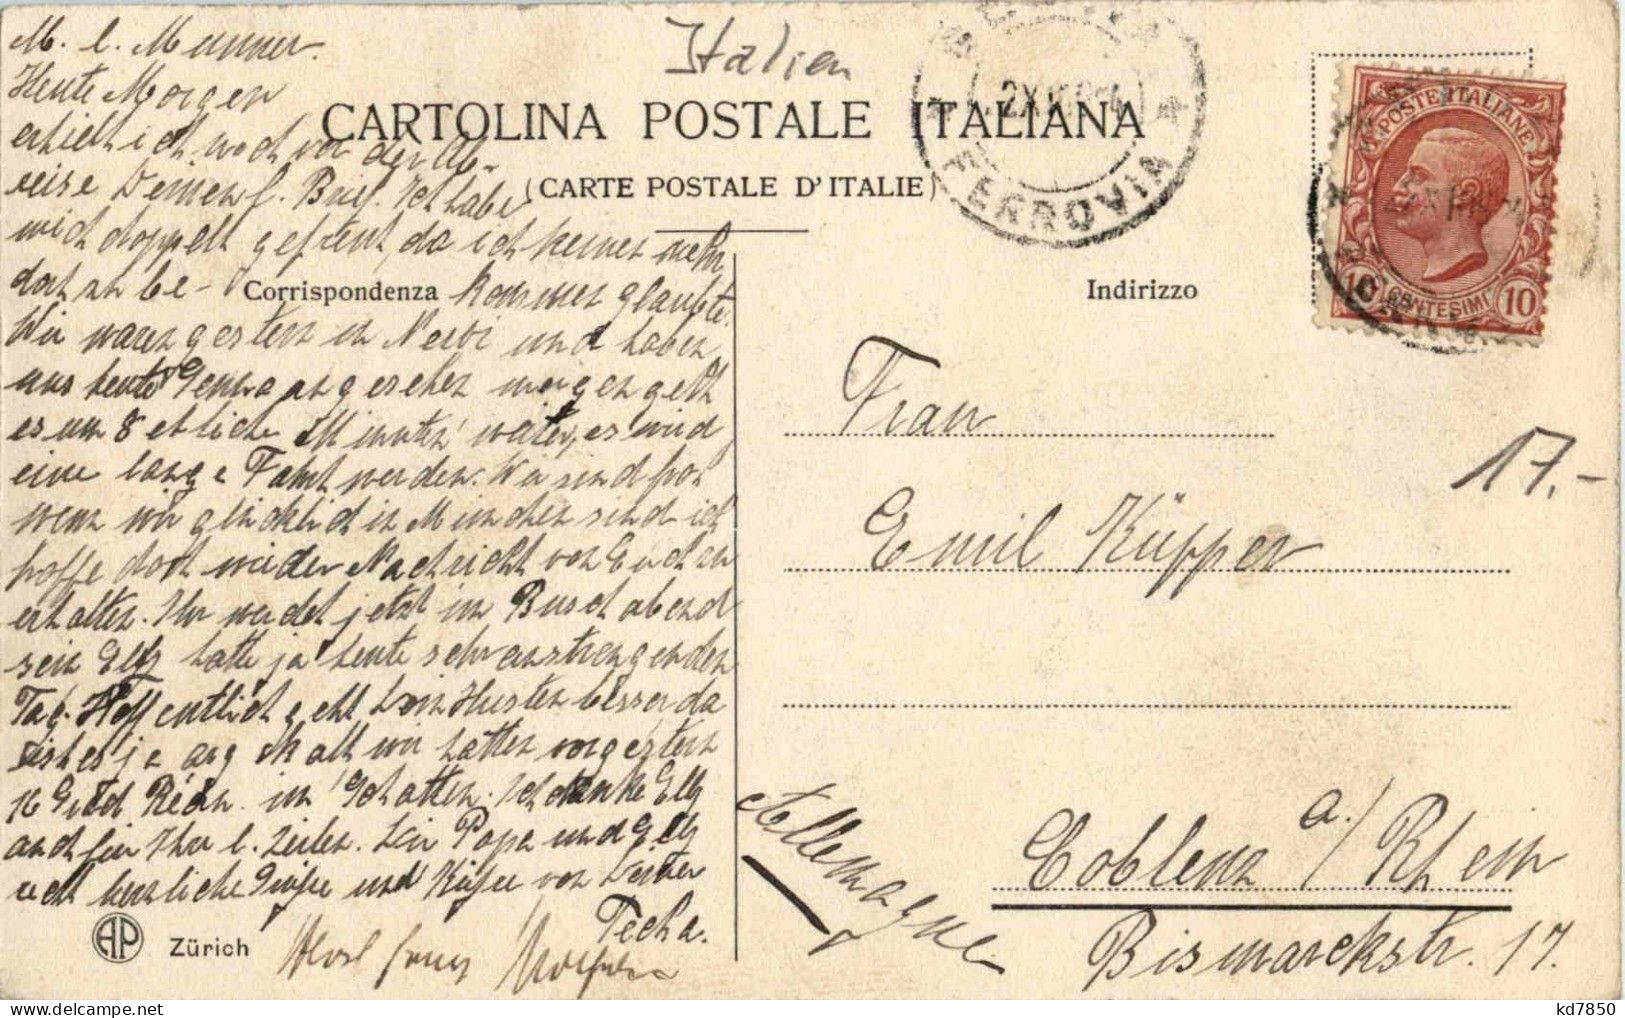 Italien
CARTOLINA POSTALE ITALIANA
(CARTE POSTALE D'ITALIE)
FERROVIA
POSTE ITALIANE
10 CENTESIMI 10
Corrispondenza
Indirizzo
M. l. Mummer.
Heute Morgen
erhielt ich noch vor der Ab-
reise Deinen l. Brief. Ich habe
mich doppelt gefreut, da ich keinen mehr
dort zu be-kommen glaubte.
Wir waren gestern in Nervi und haben
uns heute Genua angesehen morgen geht
es um 8 etliche Minuten weiter, es wird
eine lange Fahrt werden. Wir sind froh
wenn wir glücklich in München sind ich
hoffe dort wieder Nachricht von Euch zu
erhalten. Ihr werdet jetzt im abend
sein Elly hatte ja heute anstrengenden
Tag. Hoffentlich geht Dein Husten besser da
ist es ja arg kalt wir hatten vorgestern
16 Grad Réau. im Schatten. Ich danke Elly
auch für Ihre l. Zeilen. Dir Papa und Elly
recht herzliche Grüße und Küsse von Deiner
Techa.
AP Zürich
Frau
Emil Küpper
Coblenz a/Rhein
Bismarckstr. 17.
Allemagne
17.-
kd7850